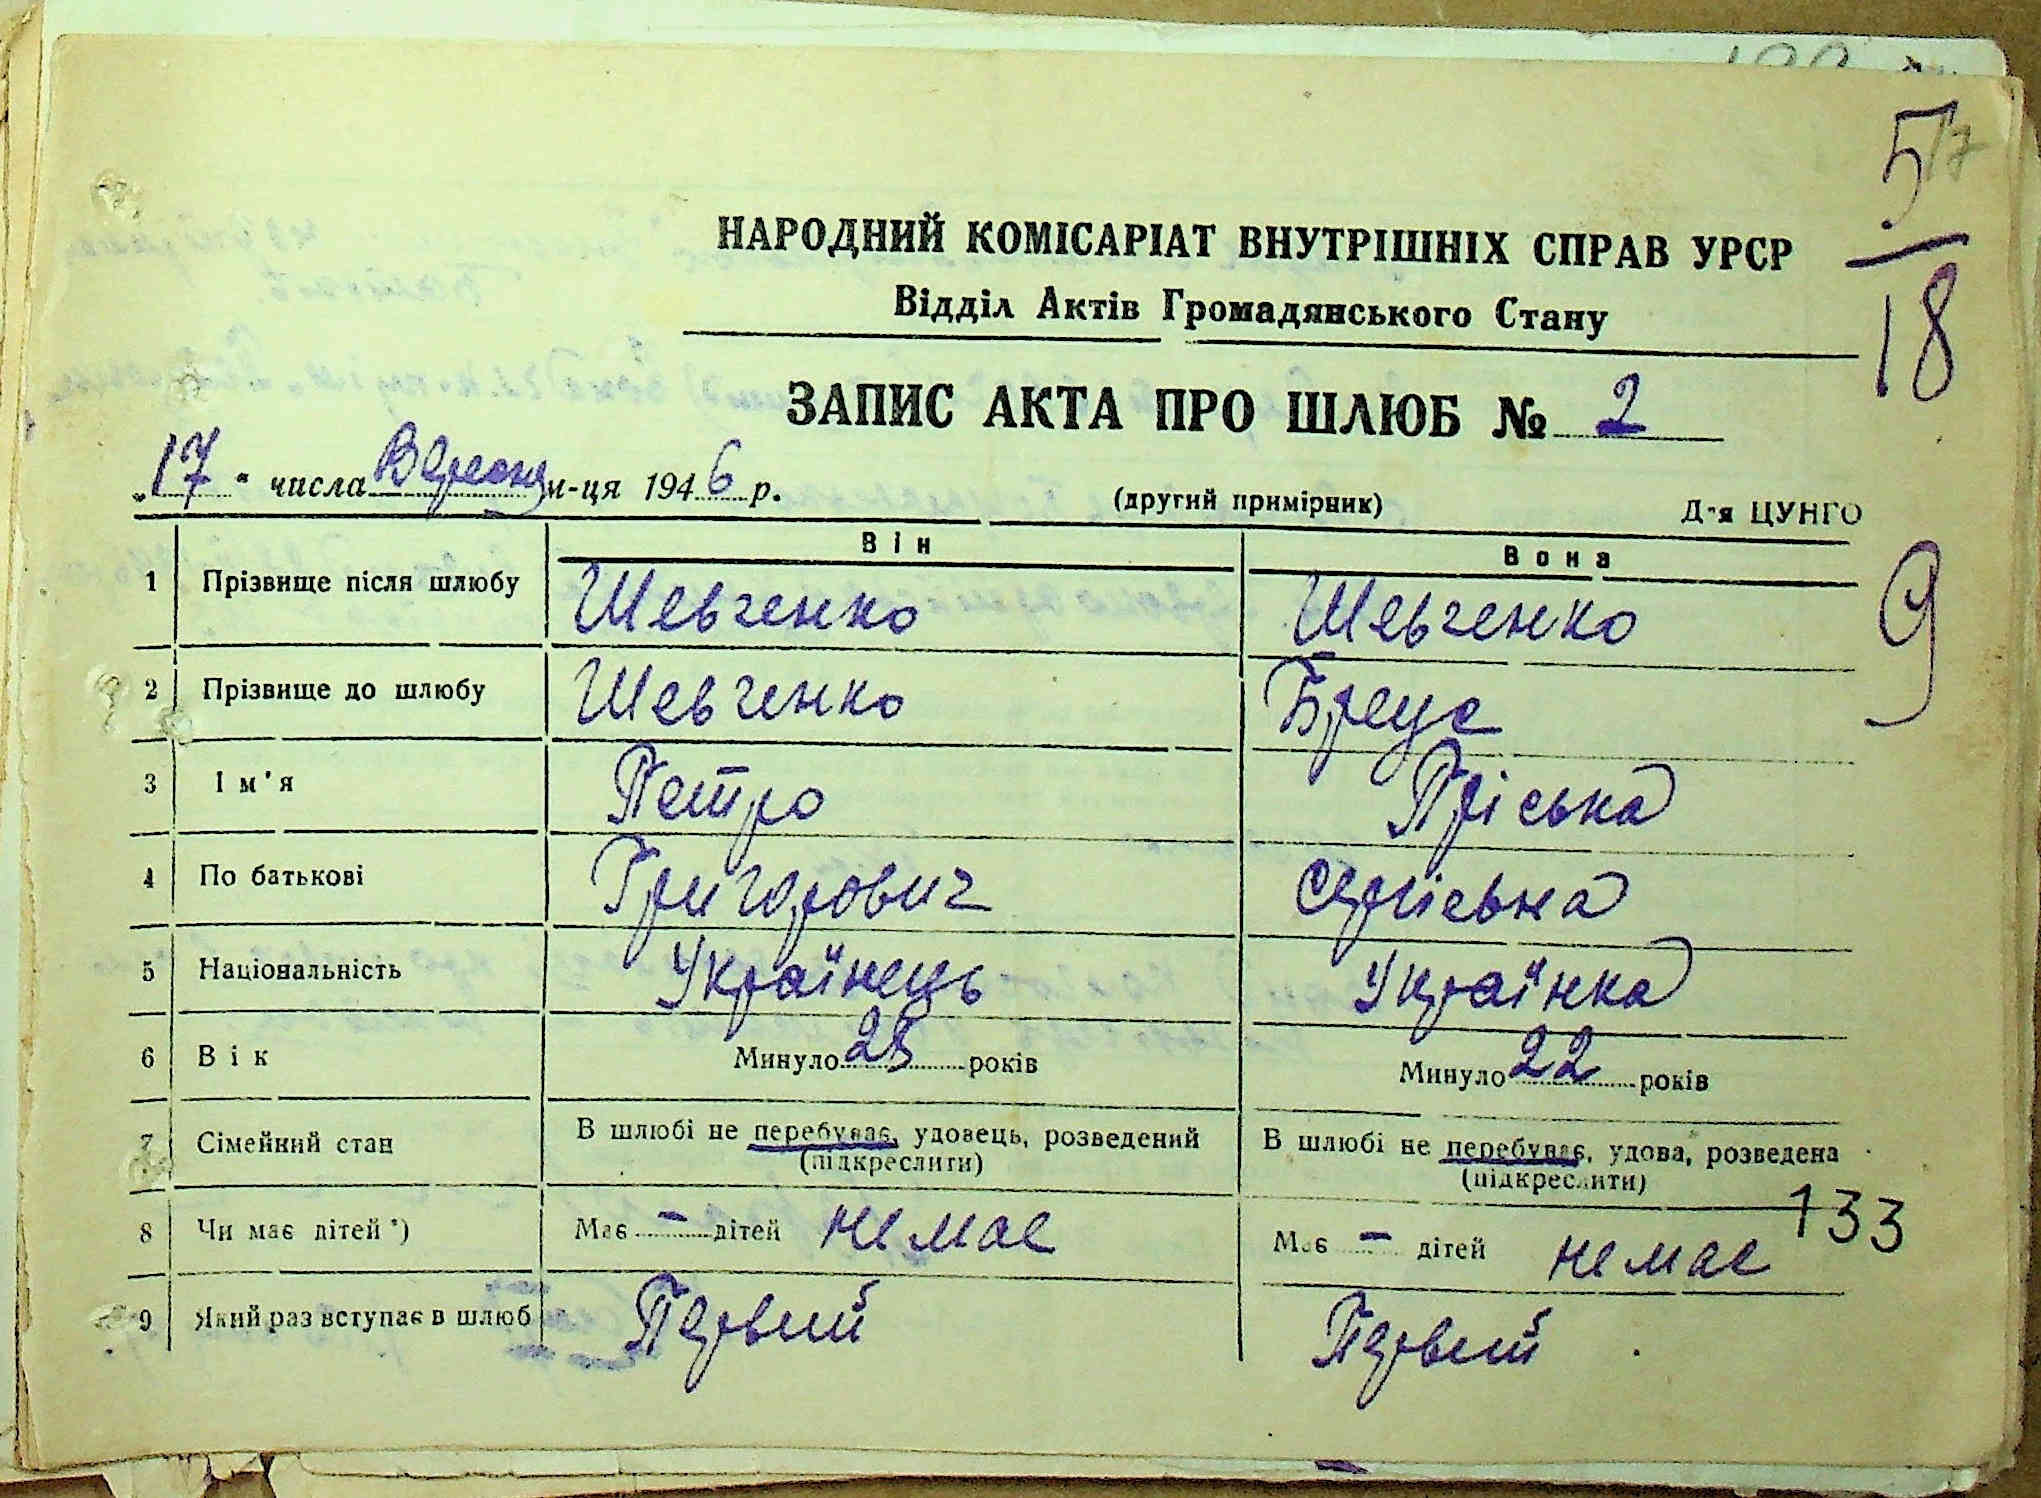 5
18
НАРОДНИЙ КОМІСАРІАТ ВНУТРІШНІХ СПРАВ УРСР
Відділ Актів Громадянського Стану
ЗАПИС АКТА ПРО ШЛЮБ № 2
„17“ числа Вересня м-ця 1946 р.
(другий примірник)
Д-я ЦУНГО
9
Він Вона
1 Прізвище після шлюбу Шевченко Шевченко
2 Прізвище до шлюбу Шевченко Бреус
3 Ім'я Петро Пріська
4 По батькові Григорович Сергіевна
5 Національність Українець Українка
6 Вік Минуло 23 років Минуло 22 років
7 Сімейний стан В шлюбі не перебуває, удовець, розведений В шлюбі не перебуває, удова, розведена
(підкреслити) (підкреслити)
133
8 Чи має дітей*) Має – дітей немає Має – дітей немає
9 Який раз вступає в шлюб Первий Первий